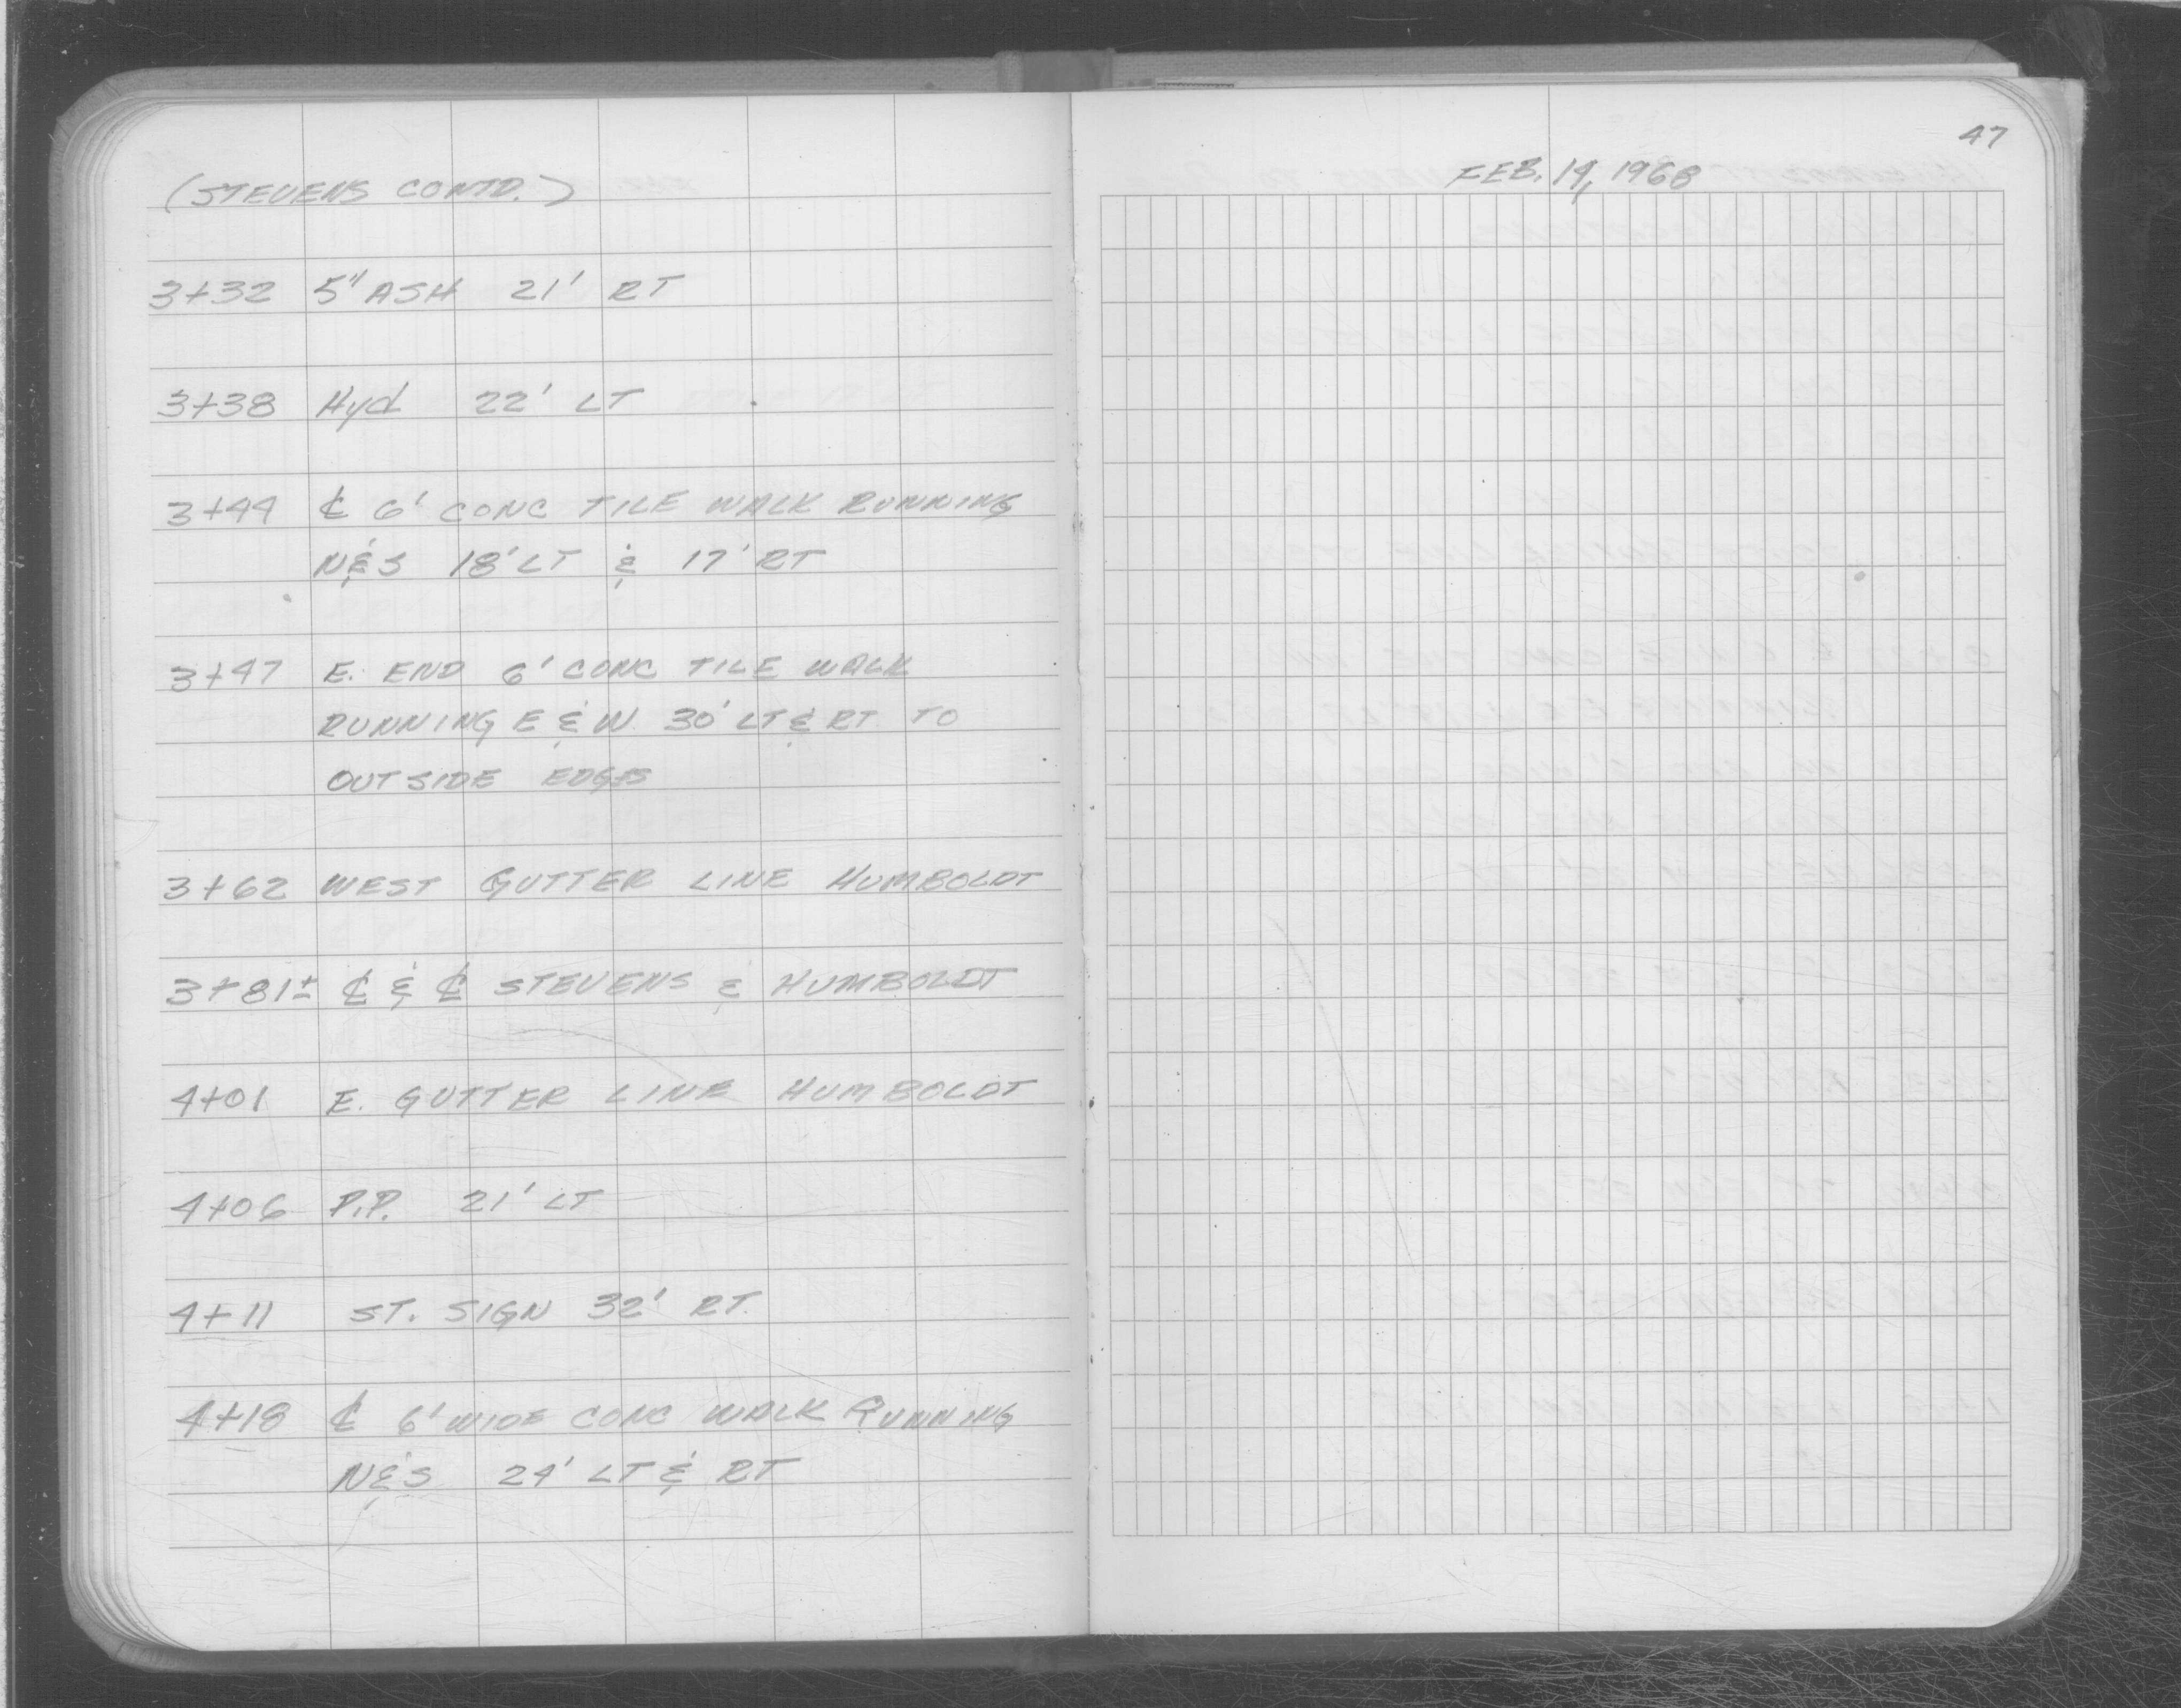 (STEVENS CONTD.)
3+32 5" ASH 21' RT
3+38 Hyd 22' LT
3+44 ℄ 6' CONC TILE WALK RUNNING
N&S 18' LT & 17' RT
3+47 E. END 6' CONC TILE WALK
RUNNING E & W. 30' LT & RT TO
OUTSIDE EDGES
3+62 WEST GUTTER LINE HUMBOLDT
3+81± ℄ & ℄ STEVENS & HUMBOLDT
4+01 E. GUTTER LINE HUMBOLDT
4+06 P.P. 21' LT
4+11 ST. SIGN 32' RT.
4+18 ℄ 6' WIDE CONC WALK RUNNING
N&S 24' LT & RT
47
FEB. 14, 1968